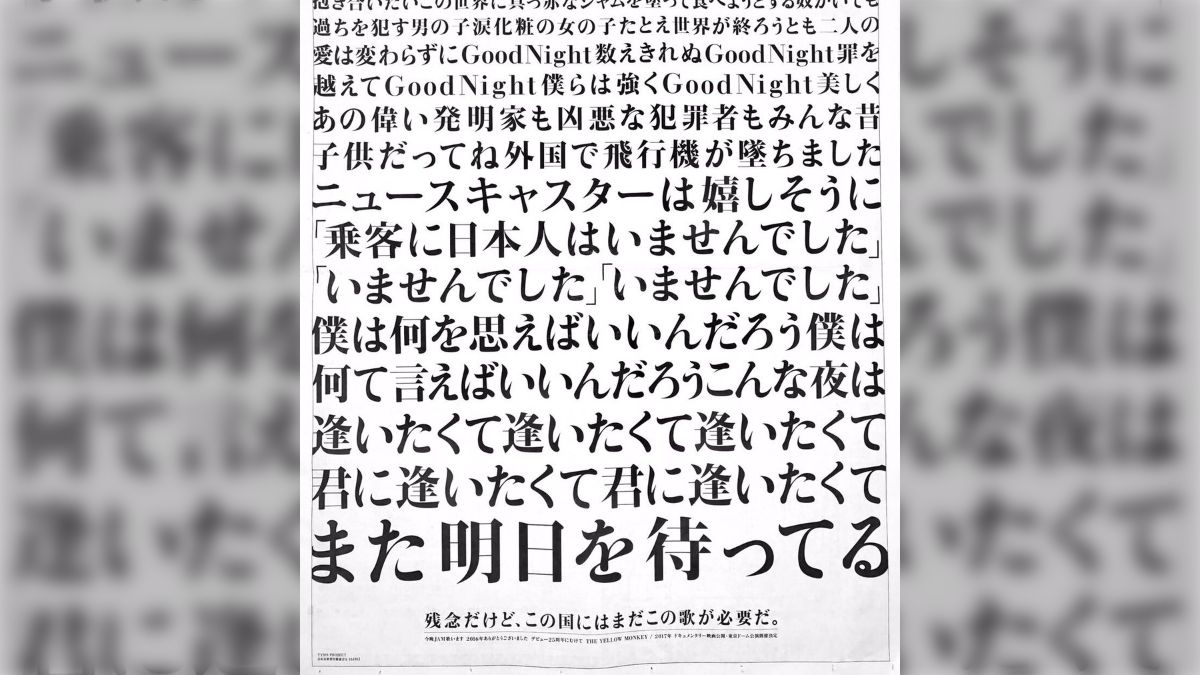 抱き合いたいこの世界に真っ赤なジャムを塗って食べようとする奴がいても
過ちを犯す男の子涙化粧の女の子たとえ世界が終ろうとも二人の
愛は変わらずにGoodNight数えきれぬGoodNight罪を
越えてGoodNight僕らは強くGoodNight美しく
あの偉い発明家も凶悪な犯罪者もみんな昔
子供だってね外国で飛行機が墜ちました
ニュースキャスターは嬉しそうに
「乗客に日本人はいませんでした」
「いませんでした」「いませんでした」
僕は何を思えばいいんだろう僕は
何て言えばいいんだろうこんな夜は
逢いたくて逢いたくて逢いたくて
君に逢いたくて君に逢いたくて
また明日を待ってる
残念だけど、この国にはまだこの歌が必要だ。
今晩JAM歌います 2016年ありがとうございました デビュー25周年にむけて THE YELLOW MONKEY / 2017年 ドキュメンタリー映画公開・東京ドーム公演開催決定
TYMS PROJECT